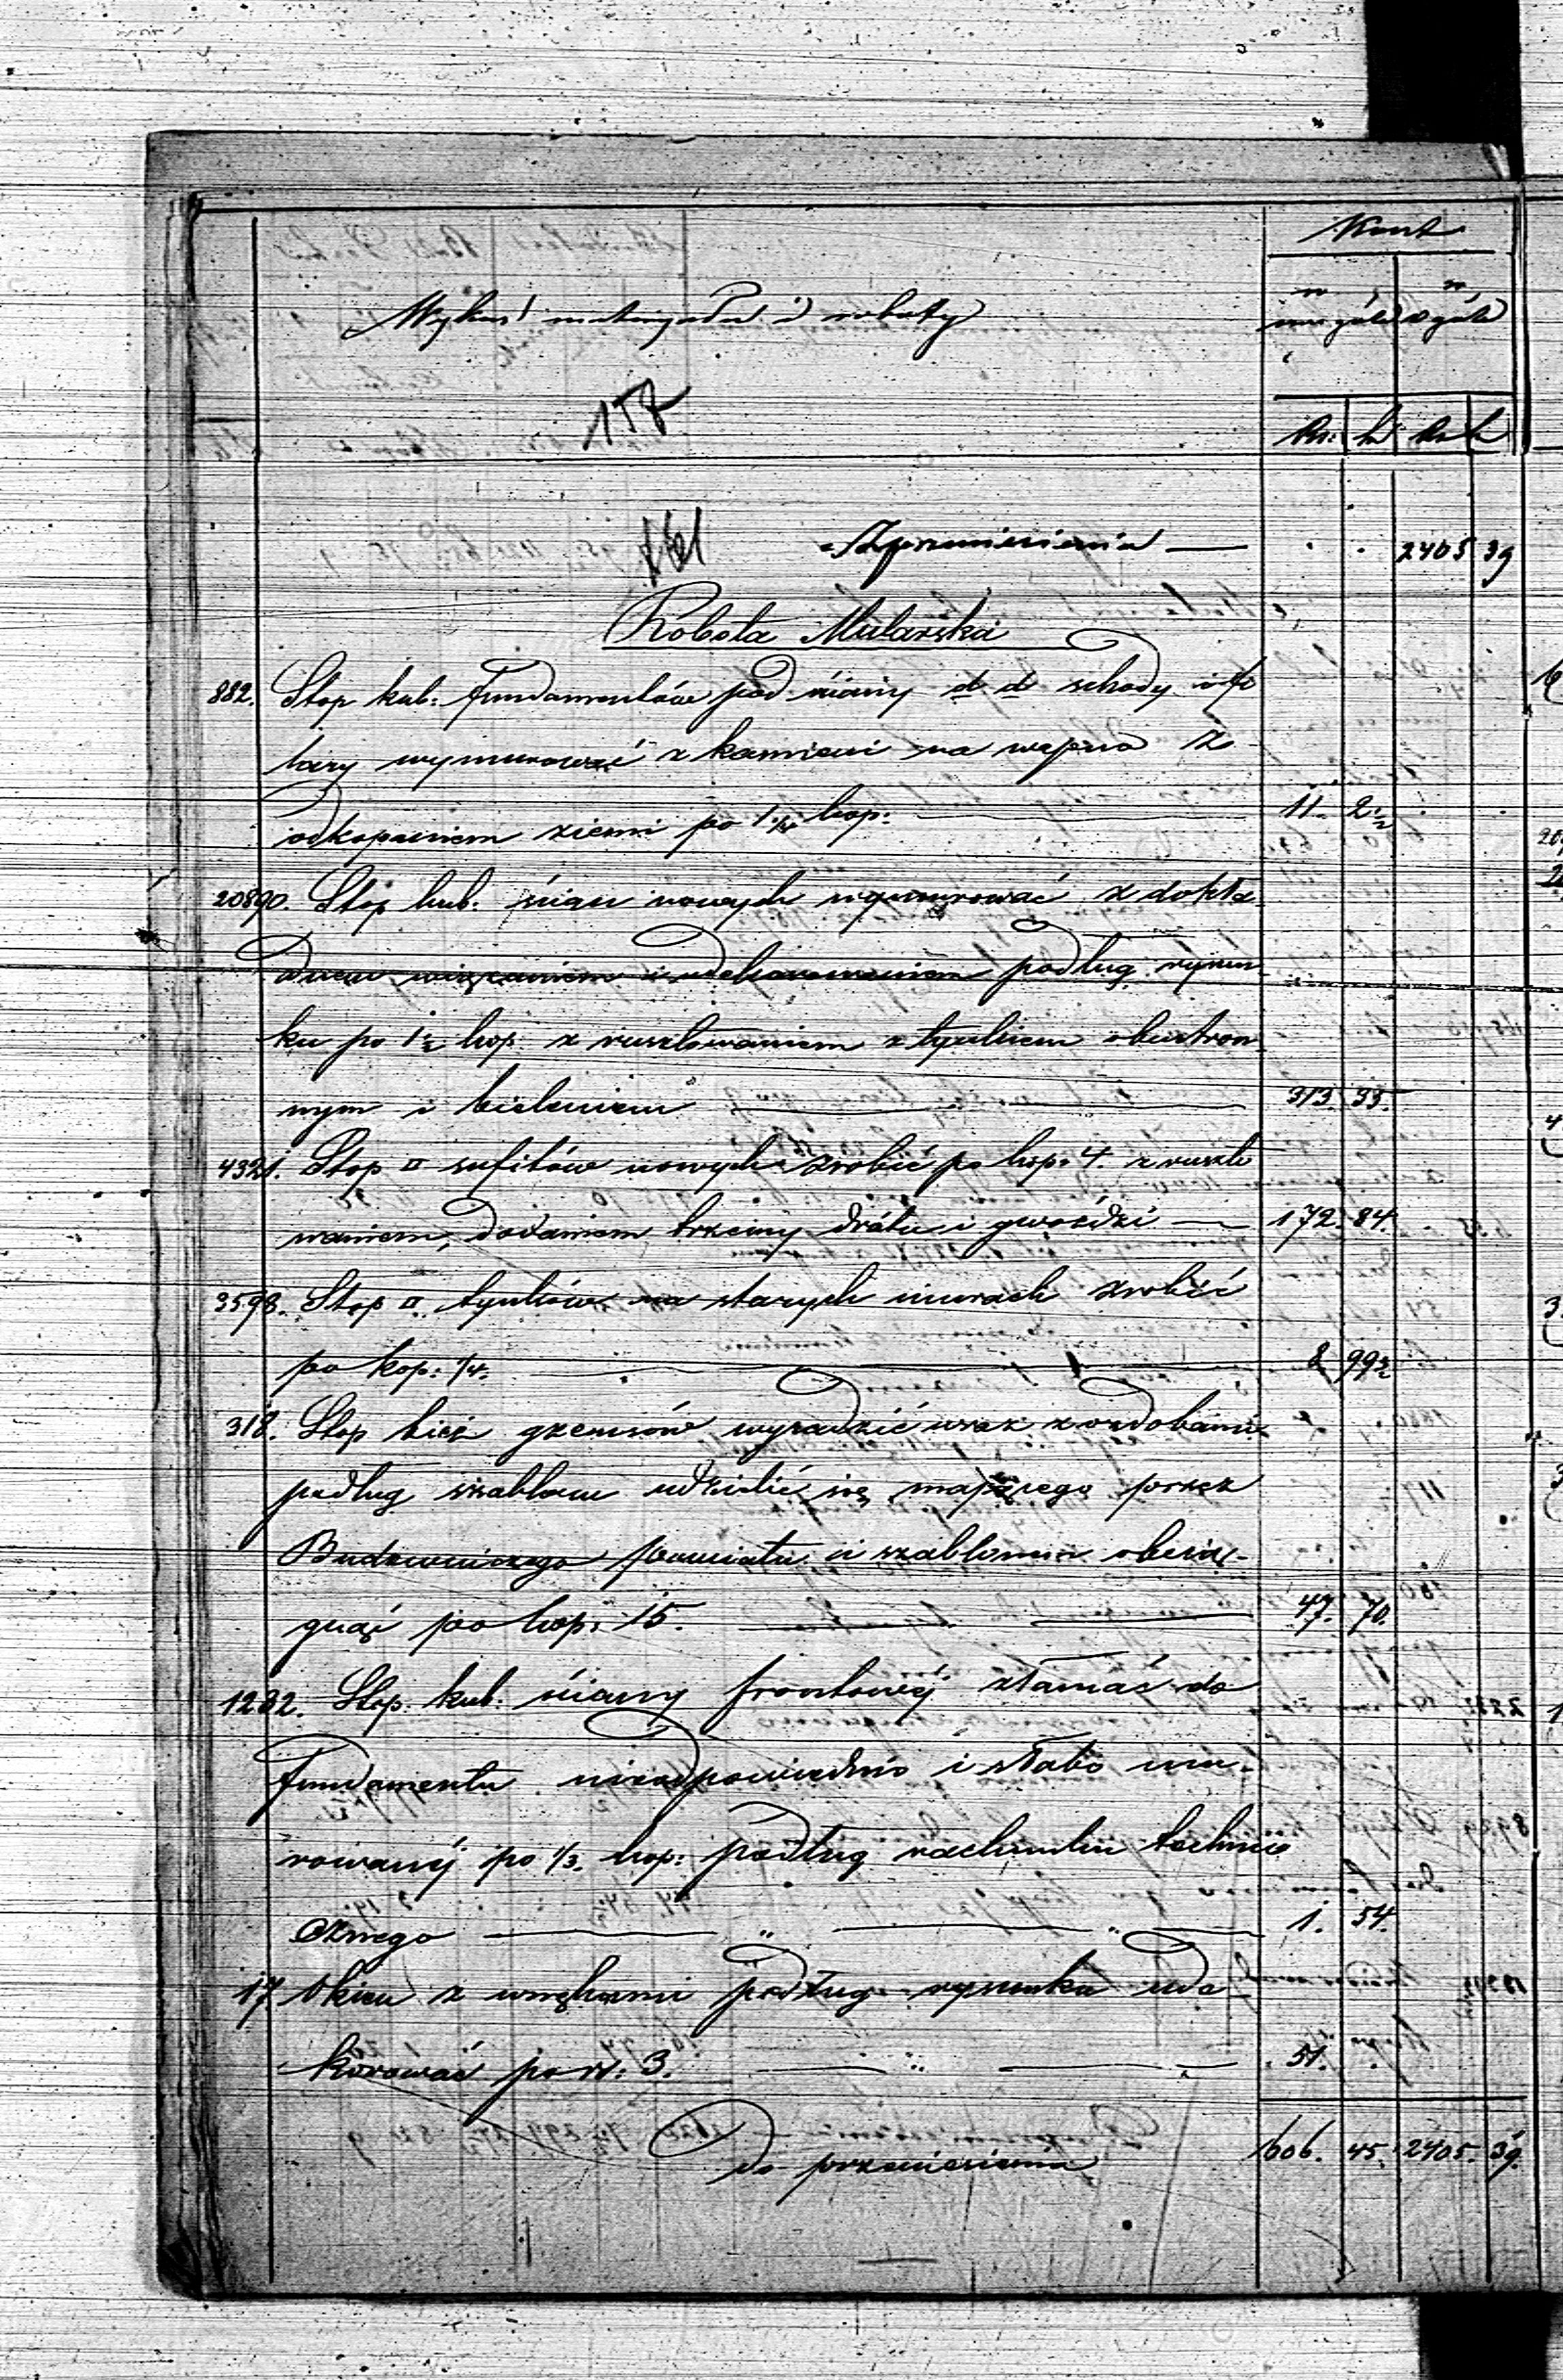 Koszt
Wykaz materyału i roboty
w szczególe
w ogóle
Rs: k Rs k
157
161
Z przeniesienia — . . 2405 39
Robota Mularska
882. Stop kub: fundamentów pod ściany d d schody i fi
lary wymurować z kamieni na wapno z
odkopaniem ziemi po 1 1/4 kop. 11. 2 1/2
20890. Stop kub. ścian nowych wymurować z dokła-
dnem wiązaniem i udekorowaniem podług rysun-
ku po 1 1/2 kop. z rusztowaniem z tynkiem obustron-
nym i bieleniem 313. 35.
4321. Stop □ sufitów nowych zrobić po kop: 4. z ruszto
waniem, dodaniem trzciny drutu i gwoździ — 172. 84.
3598. Stop □ tynków na starych murach zrobić
po kop: 1/4. 8 99 1/2
318. Stop bież gzemsów wysadzić wraz z ozdobami
podług szablonu udzielić się mającego przez
Budowniczego powiatu i szablonem obcią-
gnąć po kop: 15. 47. 70.
1232. Stop. kub: ściany frontowéj złamać do
fundamentu nieodpowiednio i słabo mu-
rowanéj po 1/3. kop: podług rachunku techni
cznego 1. 54.
17 Okien z węgłami podług rysunku ude
korować po rs: 3. 51.
Do przeniesienia 606. 45. 2405. 39.